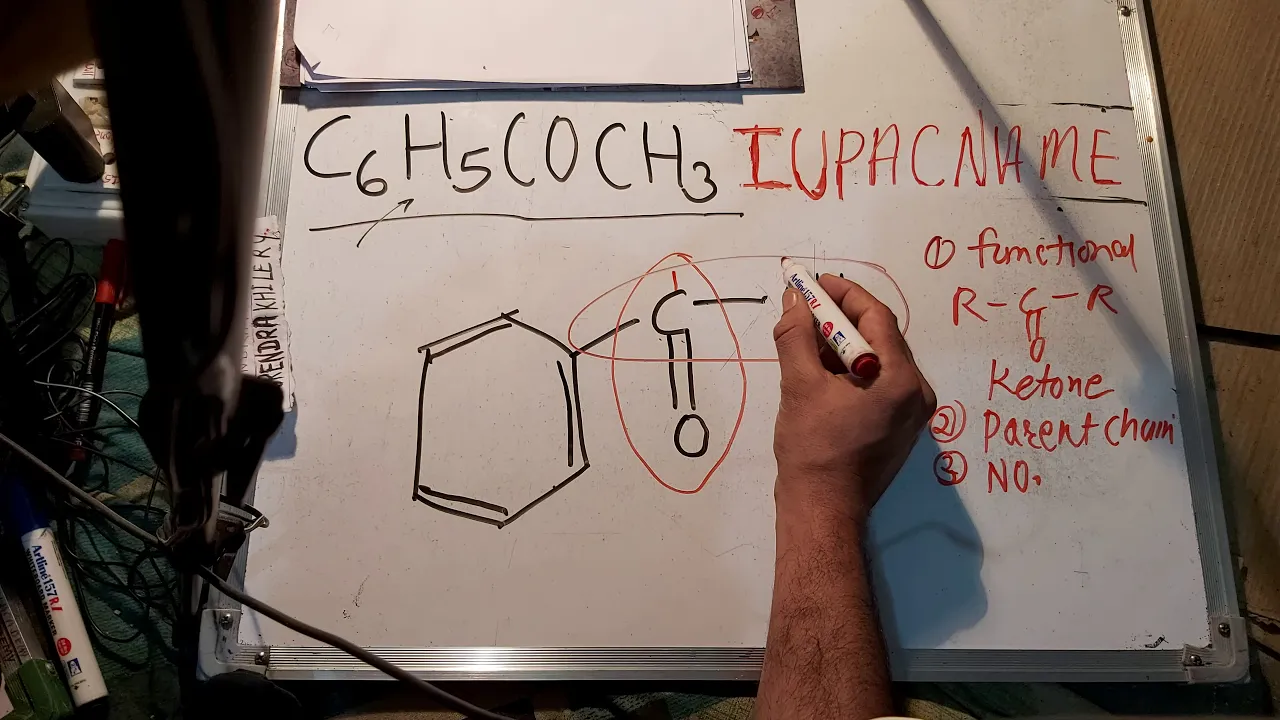 C6H5COCH3 IUPACNAME
① functional
R-C-R
O
Ketone
② Parent chain
③ NO.
C
O
Artline 157R
Artline 157R